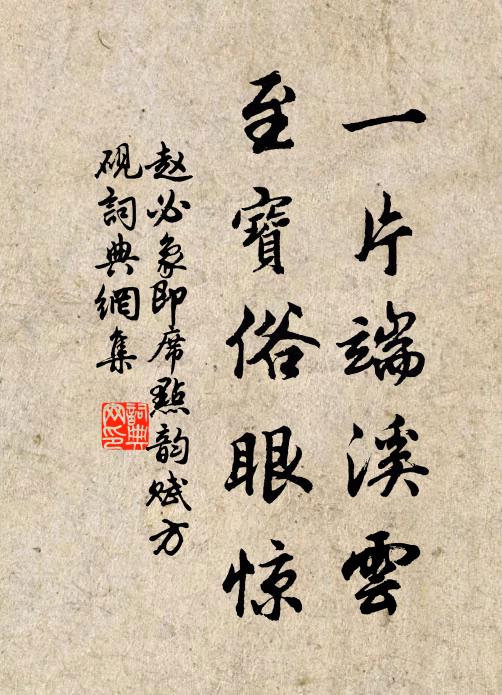 一片端溪雲
至寶俗眼惊
赵必象即席點韵赋方
砚詞典網集
詞典网印